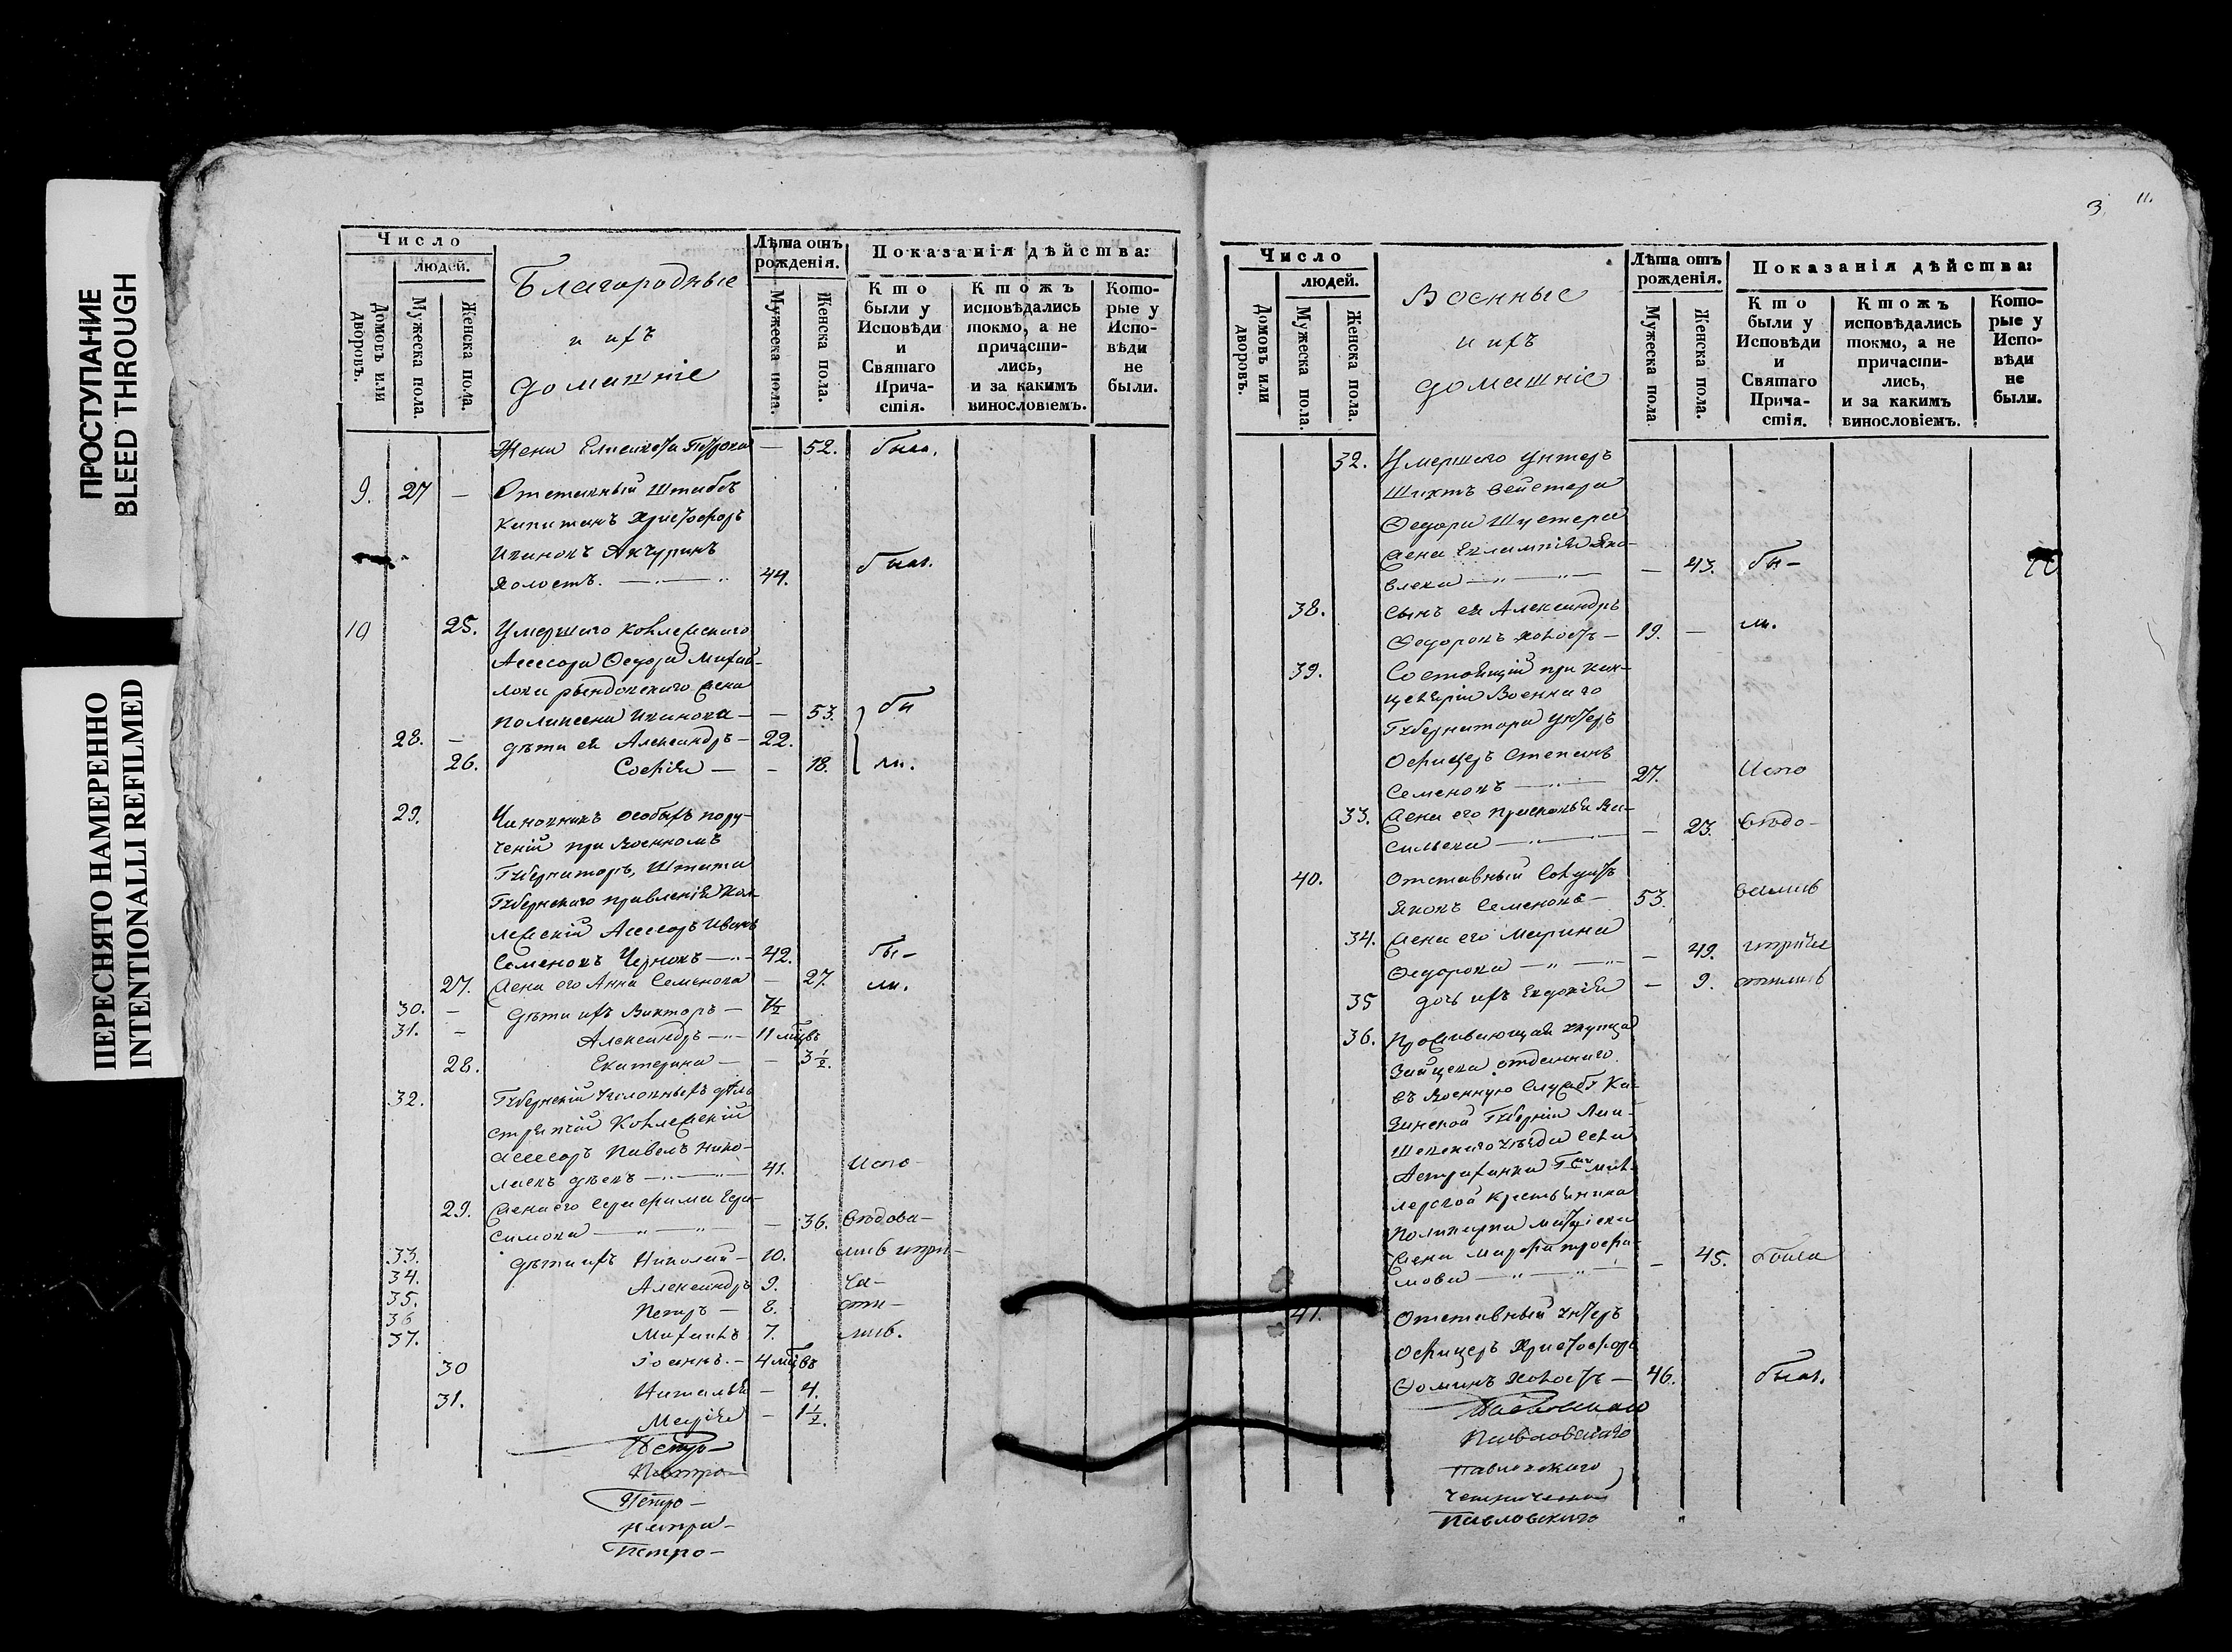 ПРОСТУПАНИЕ
BLEED THROUGH
ПЕРЕСНЯТО НАМЕРЕННО
INTENTIONALLI REFILMED
Число
людей.
Домовъ или дворовъ.
Мужеска пола.
Женска пола.
Благородные
и ихъ
домашніе
Лѣта отъ рожденія.
Мужеска пола.
Женска пола.
Показанія дѣйства:
Кто были у Исповѣди и Святаго Прича-стія.
Ктожъ исповѣдались токмо, а не причасти-лись, и за какимъ винословіемъ.
Кото-рые у Испо-вѣди не были.
Жена Елисавета Петрова — 52. была.
9. 27 — Отставный Штабсъ
Капитанъ Христофоръ
Ивановъ Акчуринъ
Холостъ. — 44. былъ.
10 25. Умершаго Коллежскаго
Ассесора Ѳедора Михай-
лова жена
Поликсена Иванова — — 53. бы
28. — дѣти ея Александръ — 22.
26. Софія — — 18. ли.
29. Чиновникъ особыхъ пору-
ченій при Военномъ
Губернаторѣ, Штата
Губернскаго правленія Кол-
лежскій Ассесоръ Иванъ
Семеновъ Черновъ — 42. бы-
27. Жена его Анна Семенова — 27. ли.
30. — Дѣти ихъ Викторъ —
31. — Александръ — 11 мцвъ
28. Екатерина — — 3 1/2.
32. Губернскій дѣлъ
стряпчій Коллежскій
ассесоръ Павелъ Нико-
лаевъ — 41. Испо-
29. Жена его Серафима Гера-
симова — — 36. вѣдова-
33. Дѣти ихъ Николай — 10. лись и при-
34. Александръ 9. ча-
35. Петръ — 8. сти-
36 Михаилъ 7. лись.
37. Іоаннъ. — 4 мцвъ
30 Наталья — 4.
31. Марія — 1 1/2.
Петро-
Петро-
Петро-
Петро-
3. 11.
Число
людей.
Домовъ или дворовъ.
Мужеска пола.
Женска пола.
Военные
и ихъ
домашніе
Лѣта отъ рожденія.
Мужеска пола
Женска пола.
Показанія дѣйства:
Кто были у Исповѣди и Святаго Прича-стія.
Ктожъ исповѣдались токмо, а не причасти-лись, и за какимъ винословіемъ.
Кото-рые у Испо-вѣди не были.
32. Умершаго Унтеръ
Шихтъ мейстера
Ѳедора Шустера
жена Евлампія Яко-
влева — — 43. бы-
38. Сынъ ея Александръ
Ѳедоровъ холостъ — 19. — ли.
39. Состоящій при Кан-
целяріи Военнаго
Губернатора Унтеръ
Офицеръ Степанъ
Семеновъ — 27. Испо
33. Жена его Прасковья Ва-
сильева — — 23. вѣдо-
40. Отставный Солдатъ
Яковъ Семеновъ — 53. вались
34. Жена его Марина
Ѳедорова — — 49. и прича
35 дочь ихъ Евдокія — 9. стились
36. Проживающая
Зайцева отданнаго
въ Военную Службу Ка-
занской Губерніи Лаи-
шевскаго уѣзда Села
Астраханки
крестьянина
Поликарпа Матѳіева
жена Марфа Трофи-
мова — — 45. была
41. Отставный Унтеръ
Офицеръ Христофоръ
Ѳоминъ Холостъ — 46. былъ.
Павловскаго
Павловскаго
Павловскаго